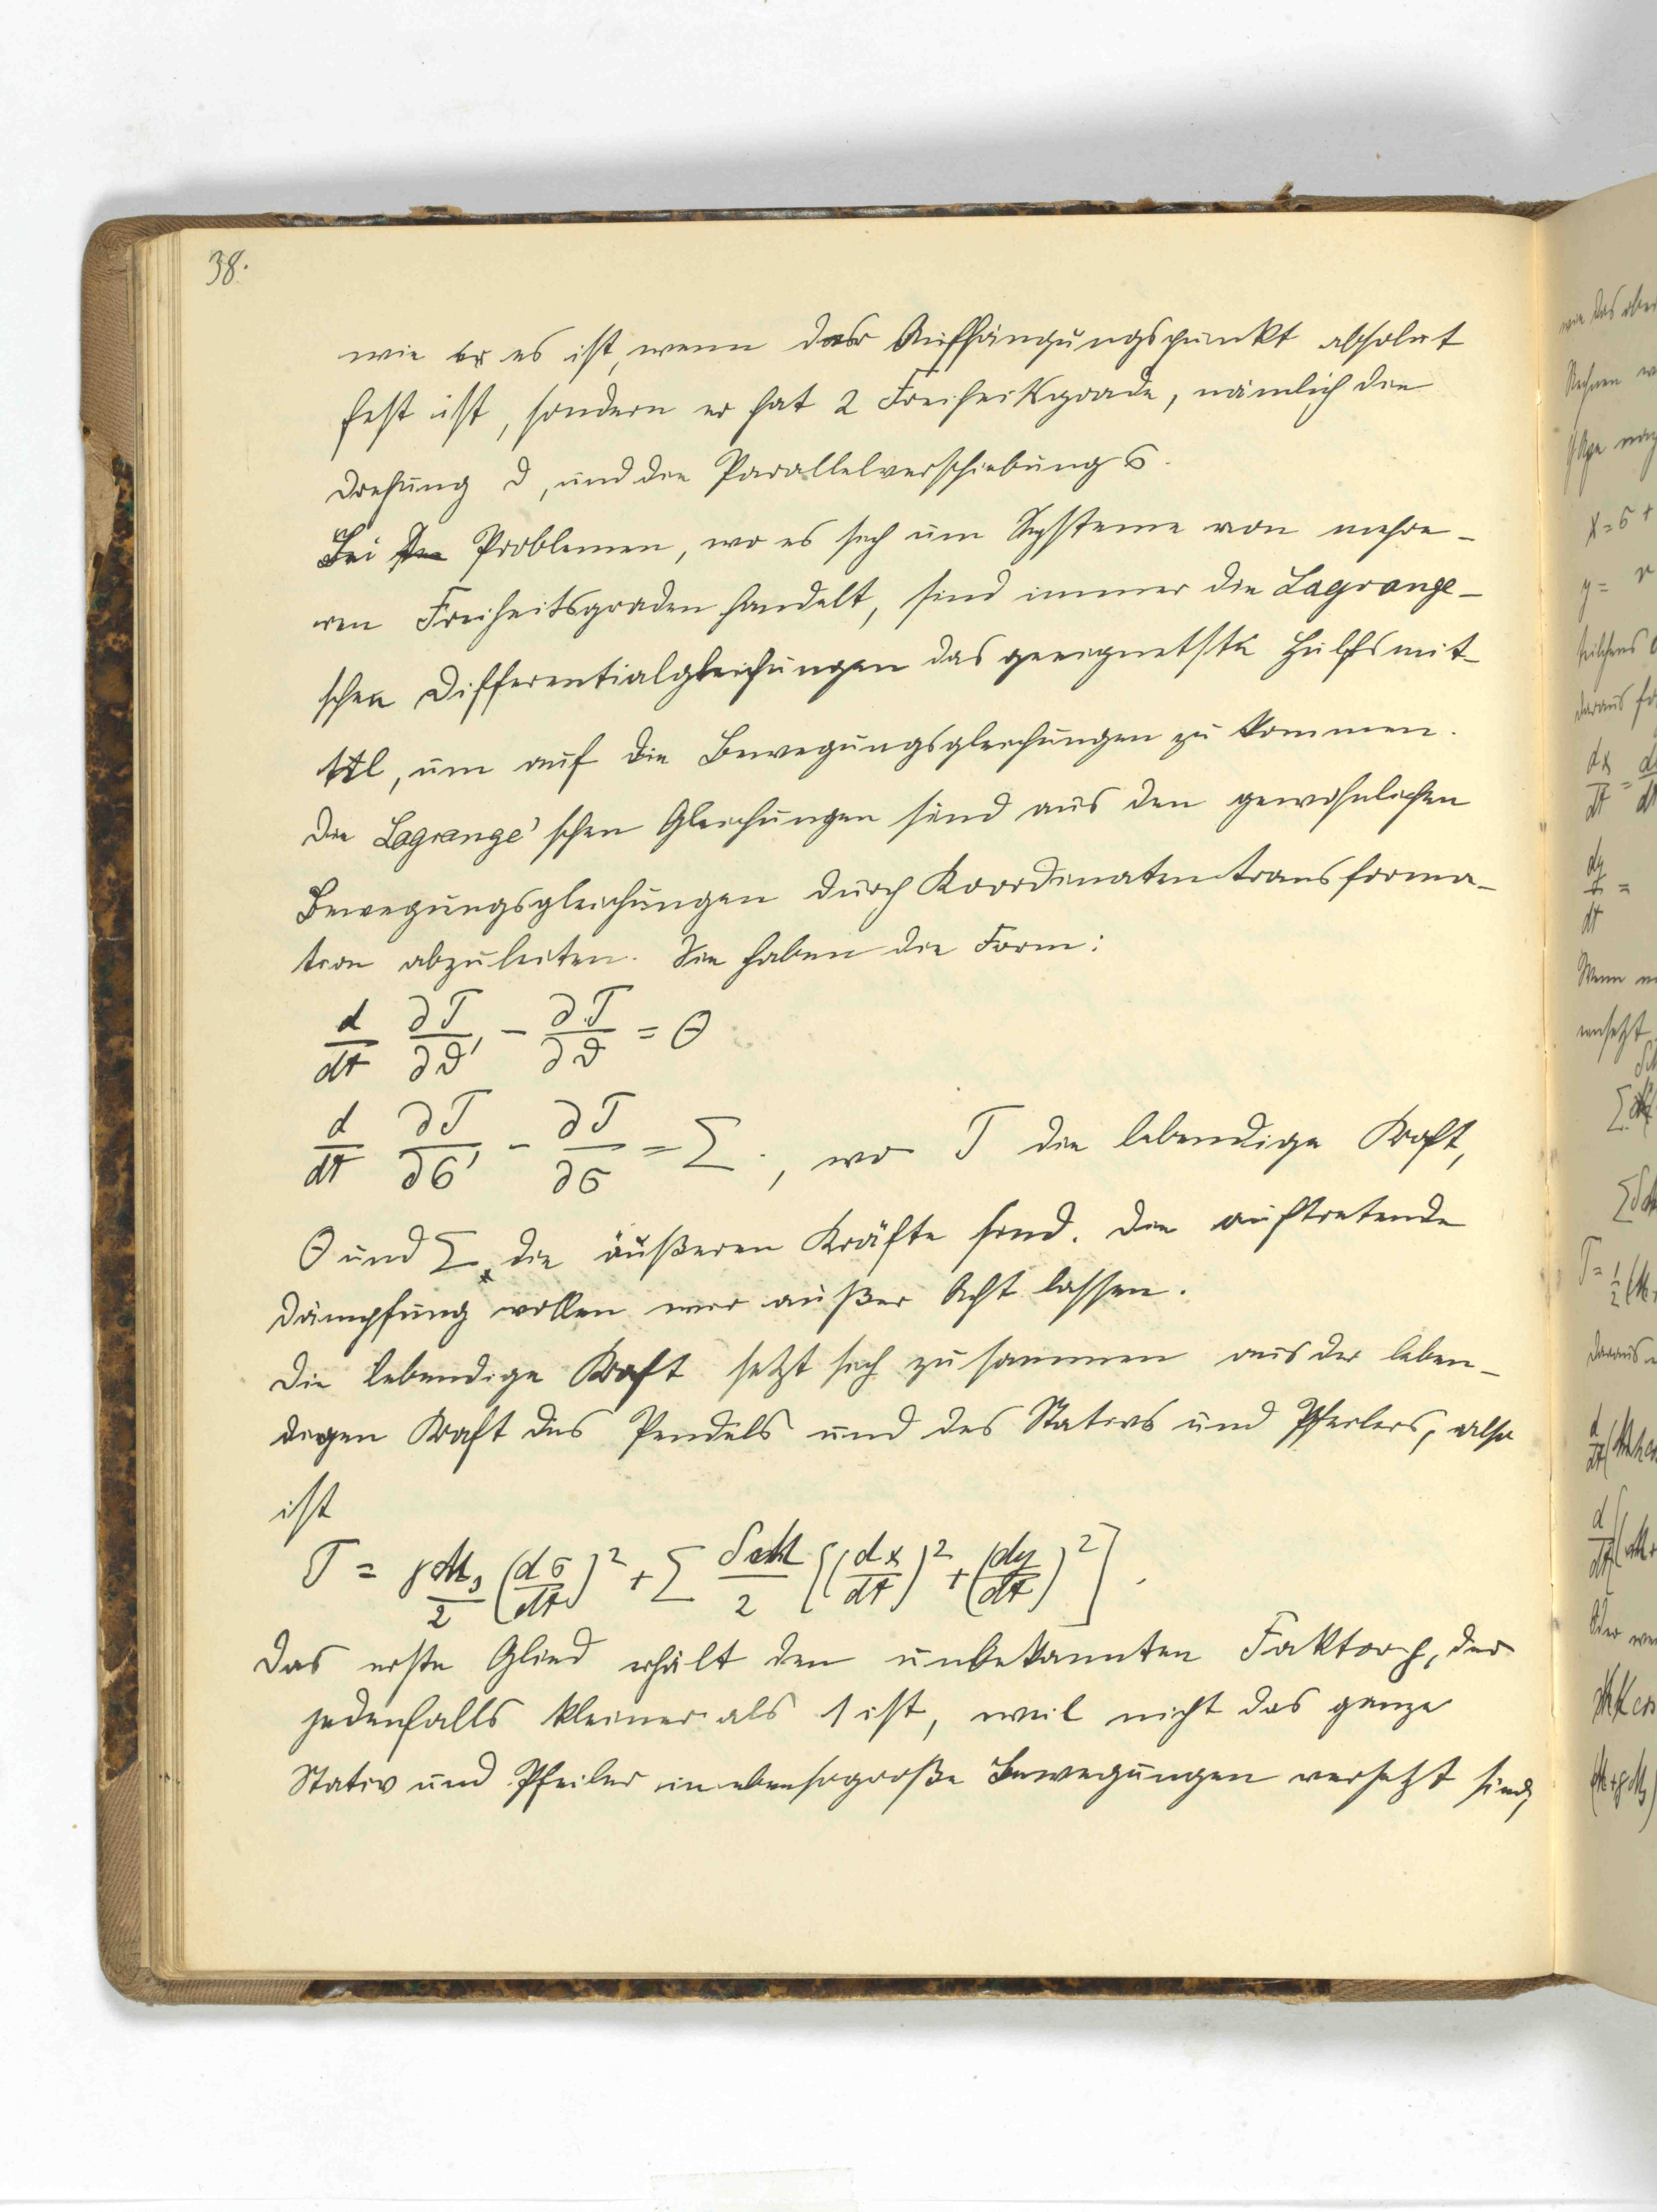 38.
wie er es ist, wenn der Aufhängungspunkt absolut
fest ist, sondern er hat 2 Freiheitsgrade, nämlich die
Drehung ϑ, und die Parallelverschiebung σ.
Bei Problemen, wo es sich um Systeme von mehre-
ren Freiheitsgraden handelt, sind immer die Lagrange-
schen Differentialgleichungen das geeignetste Hülfsmit-
tel, um auf die Bewegungsgleichungen zu kommen.
Die Lagrange'schen Gleichungen sind aus den gewöhnlichen
Bewegungsgleichungen durch Koordinatentransforma-
tion abzuleiten. Sie haben die Form:
d/dt ∂T/∂ϑ' - ∂T/∂ϑ = Θ
d/dt ∂T/∂σ' - ∂T/∂σ = Σ., wo T die lebendige Kraft,
Θ und Σ die äußeren Kräfte sind. Die auftretende
Dämpfung wollen wir außer Acht lassen.
Die lebendige Kraft setzt sich zusammen aus der leben-
digen Kraft des Pendels und des Stativs und Pfeilers, also
ist
T = γM₁/2 (dσ/dt)² + Σ δM/2 [(dx/dt)² + (dy/dt)²].
Das erste Glied erhält den unbekannten Faktor γ, der
jedenfalls kleiner als 1 ist, weil nicht das ganze
Stativ und Pfeiler in ebensogroße Bewegungen versetzt sind,
wie das
Rechnen
x = σ +
y = r
daraus
dx/dt =
dy/dt =
Wenn
T = 1/2 (M
daraus
d/dt (
d/dt (
Oder
cos
(M+γM₁)